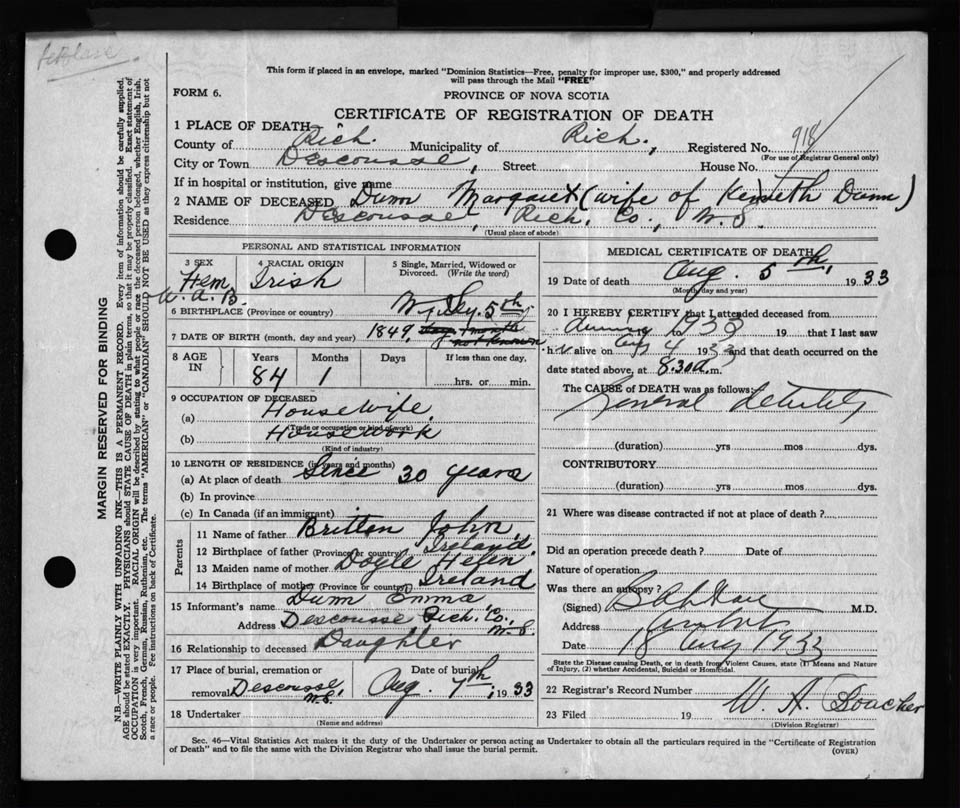 This form if placed in an envelope, marked "Dominion Statistics—Free, penalty for improper use, $300," and properly addressed
will pass through the Mail "FREE"
FORM 6.
PROVINCE OF NOVA SCOTIA
CERTIFICATE OF REGISTRATION OF DEATH
1 PLACE OF DEATH
County of Rich. Municipality of Rich., Registered No. 918
(For use of Registrar General only)
City or Town Descousse, Street House No.
If in hospital or institution, give name
2 NAME OF DECEASED Dunn Margaret (wife of Kenneth Dunn)
Residence Descousse, Rich. Co., N.S.
(Usual place of abode)
PERSONAL AND STATISTICAL INFORMATION
3 SEX Fem
4 RACIAL ORIGIN Irish
5 Single, Married, Widowed or Divorced. (Write the word)
W.
6 BIRTHPLACE (Province or country)
7 DATE OF BIRTH (month, day and year) 1849, 5th
day, month
not known
8 AGE IN Years 84 Months 1 Days If less than one day,
hrs. or min.
9 OCCUPATION OF DECEASED
(a) Housewife.
(Trade or occupation or kind of work)
(b) Housework
(Kind of industry)
10 LENGTH OF RESIDENCE (in years and months)
(a) At place of death Since 30 years
(b) In province
(c) In Canada (if an immigrant)
Parents
11 Name of father Britten John,
12 Birthplace of father (Province or country) Ireland.
13 Maiden name of mother Doyle Helen
14 Birthplace of mother (Province or country) Ireland
15 Informant's name Dunn Emma
Address Descousse Rich. Co., N.S.
16 Relationship to deceased Daughter
17 Place of burial, cremation or removal Descousse, N.S.
Date of burial Aug. 7th, 1933
18 Undertaker
(Name and address)
MEDICAL CERTIFICATE OF DEATH
19 Date of death Aug. 5th, 1933
(Month, day and year)
20 I HEREBY CERTIFY that I attended deceased from
during 1933 19 that I last saw
h alive on Aug 4 1933 and that death occurred on the
date stated above, at 8.30 a.m.
The CAUSE of DEATH was as follows:
General Debility
(duration) yrs mos dys.
CONTRIBUTORY
(duration) yrs mos dys.
21 Where was disease contracted if not at place of death?
Did an operation precede death? Date of
Nature of operation
Was there an autopsy?
(Signed) M.D.
Address
Date 18 Aug 1933
State the Disease causing Death, or in death from Violent Causes, state (1) Means and Nature
of Injury, (2) whether Accidental, Suicidal or Homicidal.
22 Registrar's Record Number
23 Filed 19 W. A.
(Division Registrar)
Sec. 46—Vital Statistics Act makes it the duty of the Undertaker or person acting as Undertaker to obtain all the particulars required in the "Certificate of Registration
of Death" and to file the same with the Division Registrar who shall issue the burial permit.
(OVER)
MARGIN RESERVED FOR BINDING
N.B.—WRITE PLAINLY WITH UNFADING INK—THIS IS A PERMANENT RECORD. Every item of information should be carefully supplied.
AGE should be stated EXACTLY. PHYSICIANS should STATE CAUSE OF DEATH in plain terms, so that it may be properly classified. Exact statement of
OCCUPATION is very important. RACIAL ORIGIN will be described by stating to what people or race the deceased person belonged, whether English, Irish,
Scotch, French, German, Russian, Ruthenian, etc. The terms "AMERICAN" or "CANADIAN" SHOULD NOT BE USED as they express citizenship but not
a race or people. See instructions on back of Certificate.